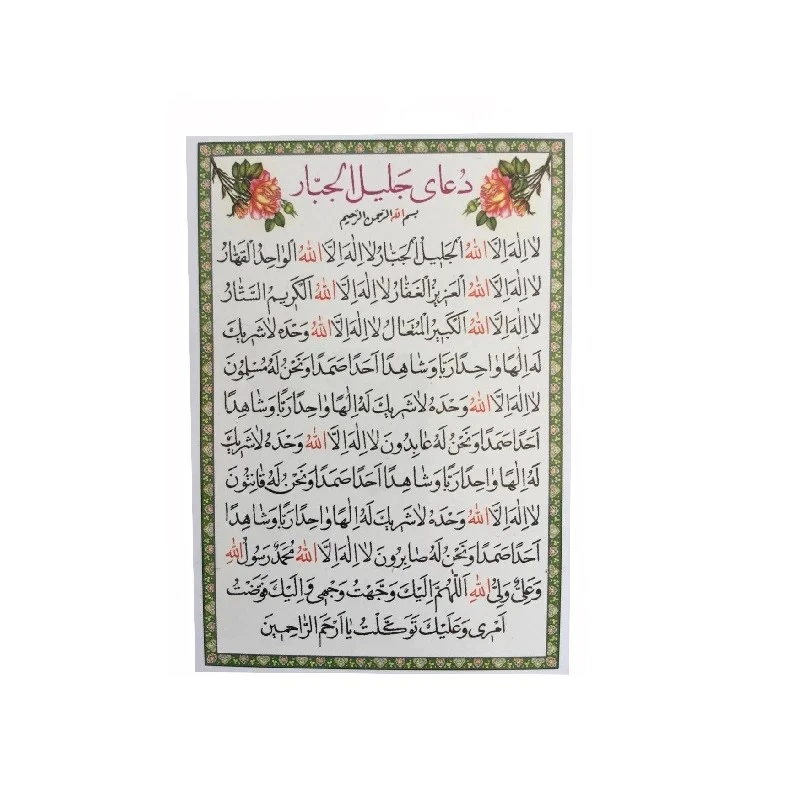 دُعای جَلیلُ الجَبّار
بسم الله الرحمن الرحیم
لا اِلٰهَ اِلَّا اللهُ الْجَلیلُ الْجَبّارُ لا اِلٰهَ اِلَّا اللهُ الْواحِدُ الْقَهّارُ
لا اِلٰهَ اِلَّا اللهُ الْعَزیزُ الْغَفّارُ لا اِلٰهَ اِلَّا اللهُ الْكَریمُ السَّتّارُ
لا اِلٰهَ اِلَّا اللهُ الْكَبیرُ الْمُتَعالُ لا اِلٰهَ اِلَّا اللهُ وَحْدَهُ لا شَریكَ
لَهُ اِلٰهًا واحِدًا رَبًّا وَشاهِدًا اَحَدًا صَمَدًا وَنَحْنُ لَهُ مُسْلِمُونَ
لا اِلٰهَ اِلَّا اللهُ وَحْدَهُ لا شَریكَ لَهُ اِلٰهًا واحِدًا رَبًّا وَشاهِدًا
اَحَدًا صَمَدًا وَنَحْنُ لَهُ عابِدُونَ لا اِلٰهَ اِلَّا اللهُ وَحْدَهُ لا شَریكَ
لَهُ اِلٰهًا واحِدًا رَبًّا وَشاهِدًا اَحَدًا صَمَدًا وَنَحْنُ لَهُ قانِتُونَ
لا اِلٰهَ اِلَّا اللهُ وَحْدَهُ لا شَریكَ لَهُ اِلٰهًا واحِدًا رَبًّا وَشاهِدًا
اَحَدًا صَمَدًا وَنَحْنُ لَهُ صابِرُونَ لا اِلٰهَ اِلَّا اللهُ مُحَمَّدٌ رَسُولُ اللهِ
وَعَلِیٌّ وَلِیُّ اللهِ اَللّٰهُمَّ اِلَیْكَ وَجَّهْتُ وَجْهی وَاِلَیْكَ فَوَّضْتُ
اَمْری وَعَلَیْكَ تَوَكَّلْتُ یا اَرْحَمَ الرّاحِمینَ